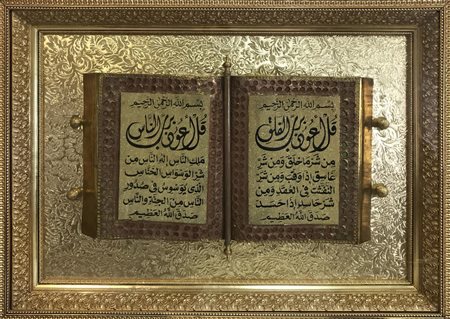 بسم الله الرحمن الرحيم
قل اعوذ برب الفلق
من شر ما خلق ومن شر
غاسق اذا وقب ومن شر
النفثت في العقد ومن
شر حاسد اذا حسد
صدق الله العظيم
بسم الله الرحمن الرحيم
قل اعوذ برب الناس
ملك الناس اله الناس من
شر الوسواس الخناس
الذى يوسوس في صدور
الناس من الجنة والناس
صدق الله العظيم